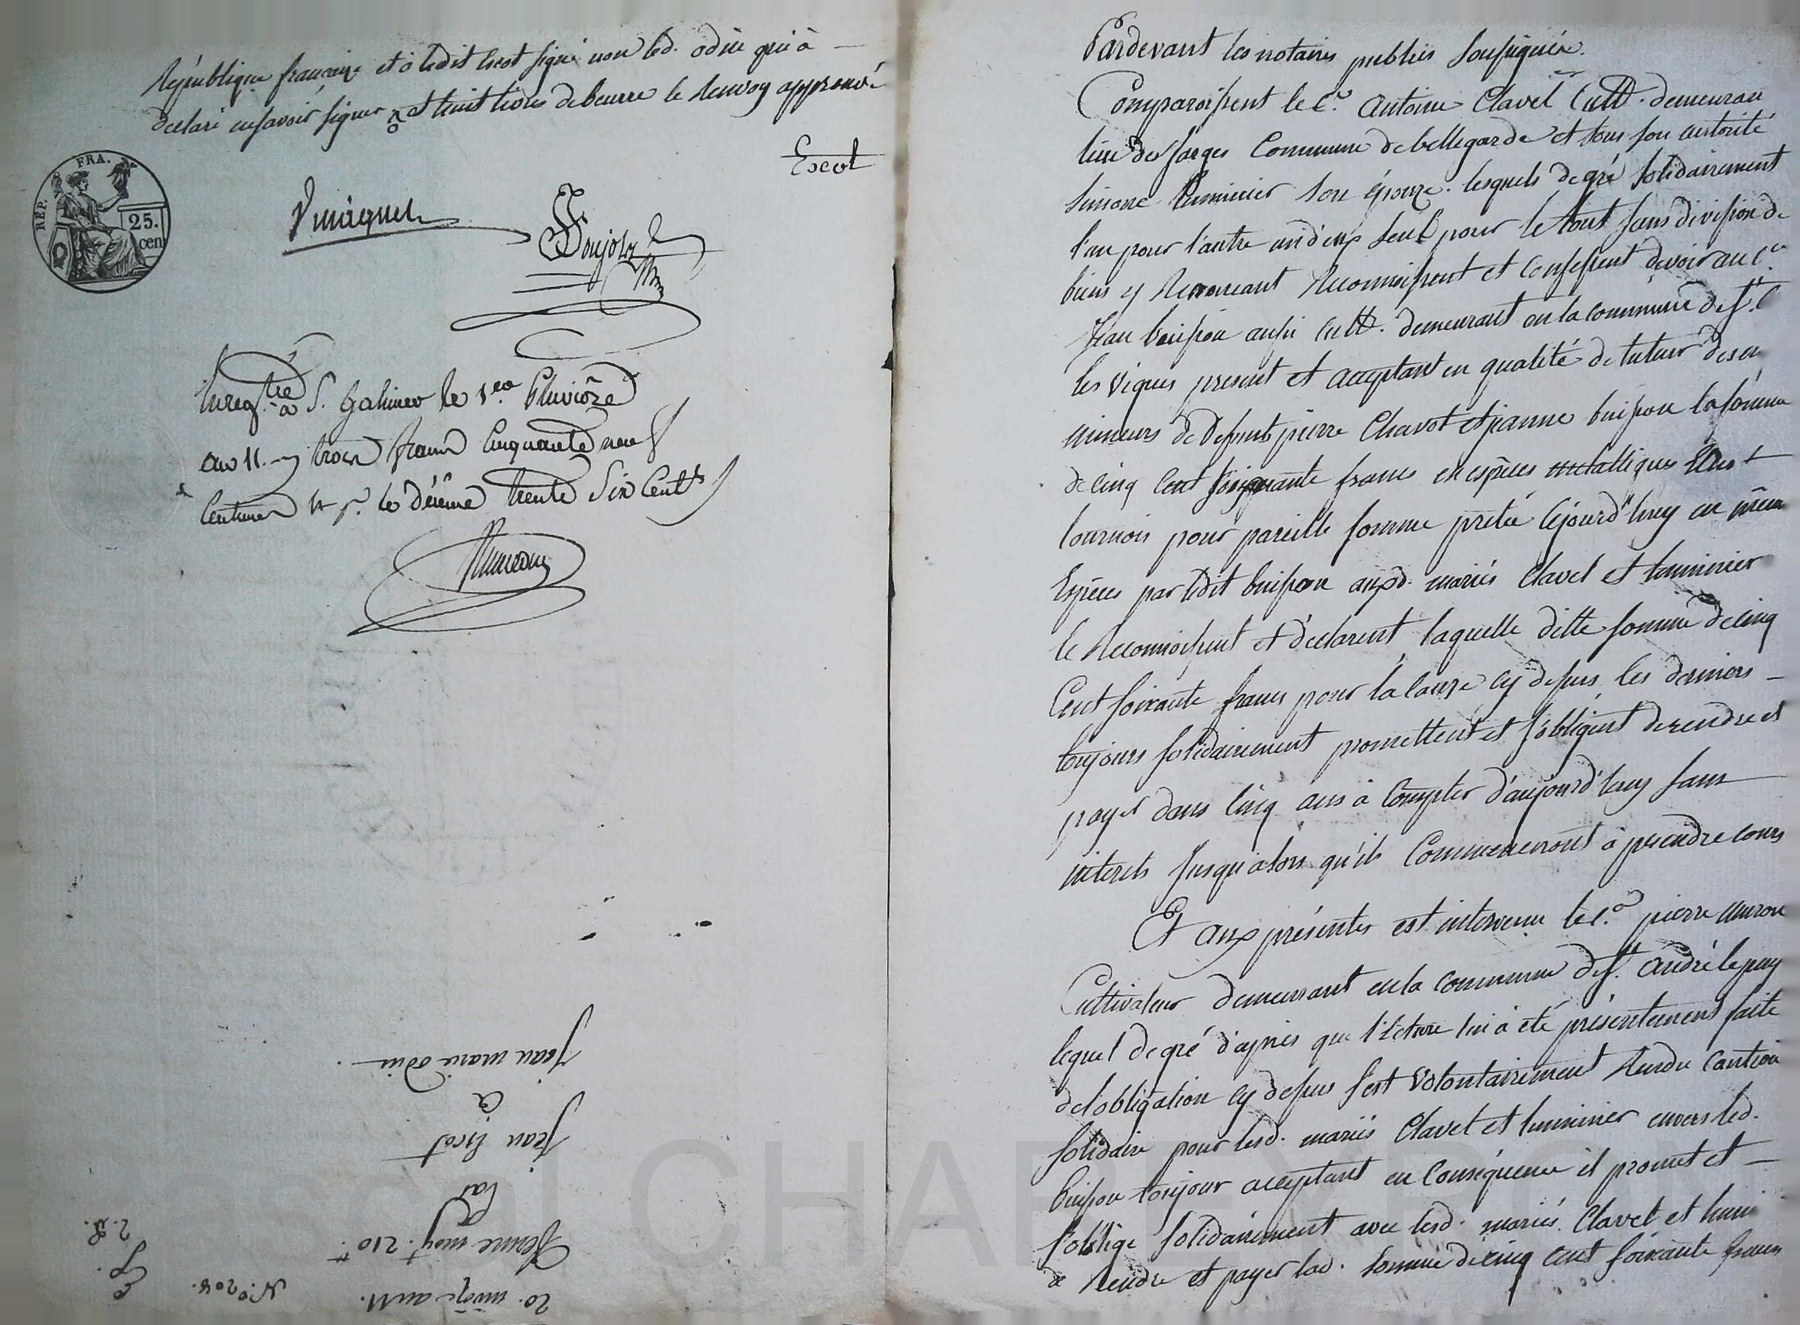 République française et à ledit Escot signé non led. odin qui à
déclaré ne savoir signer et huit livres de beurre le renvoy approuvé
Escot
REP. FRA.
25.
cen
Enregtré à S. Galmier le 1.er Pluviôse
an 11. trois francs Cinquante neuf
Centimes et pr. le décime trente Six Cent.s
Pardevant les notaires publics soussignés.
Comparoissent le C.en antoine Clavel Cult. demeurant
lieu des farges Commune de bellegarde et sous son autorité
simone luminier son épouse. lesquels de gré solidairement
l'un pour l'autre un d'eux seul pour le tout sans division de
biens y renonceant reconnoissent et confessent devoir au C.en
Jean buisson aussi Cult. demeurant en la commune de S.t C
les vignes present et acceptant en qualité de tuteur des en
mineurs de defunts pierre Chavot et jeanne buisson la somme
de cinq Cent soixante francs en espèces metalliques
tournois pour pareille somme pretée cejourd'huy en même
Espèces par ledit buisson auxd. mariés Clavel et luminier
le reconnoissent et déclarent, laquelle ditte somme de cinq
Cent soixante francs pour la cause cy dessus les derniers
toujours solidairement promettent et s'obligent de rendre et
payer dans cinq ans à compter d'aujourd'huy sans
interets jusqu'alors qu'ils Commenceront à prendre cours
Et aux présentes est intervenu le C.en pierre
Cultivateur demeurant en la commune de S.t andré le puy
lequel de gré d'après que lecture lui à été présentement faite
de l'obligation cy dessus s'est volontairement rendu caution
solidaire pour lesd. mariés Clavel et luminier envers led.
buisson toujour acceptant en conséquence il promet et
s'oblige solidairement avec lesd. mariés Clavel et lumi
à rendre et payer lad. somme de cinq cent soixante francs
20. nivôse an 11.
N.o 208.
ferme moyt. 210.tt
Par
Jean Escot
à
Jean marie odin
Ep.
2. d.
sal CHAPERON